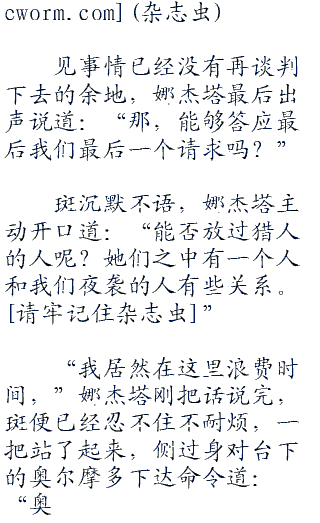 cworm.com](杂志虫)
见事情已经没有再谈判
下去的余地，娜杰塔最后出
声说道：“那，能够答应最
后我们最后一个请求吗？”
斑沉默不语，娜杰塔主
动开口道：“能否放过猎人
的人呢？她们之中有一个人
和我们夜袭的人有些关系。
[请牢记住杂志虫]”
“我居然在这里浪费时
间，”娜杰塔刚把话说完，
斑便已经忍不住不耐烦，一
把站了起来，侧过身对台下
的奥尔摩多下达命令道：
“奥